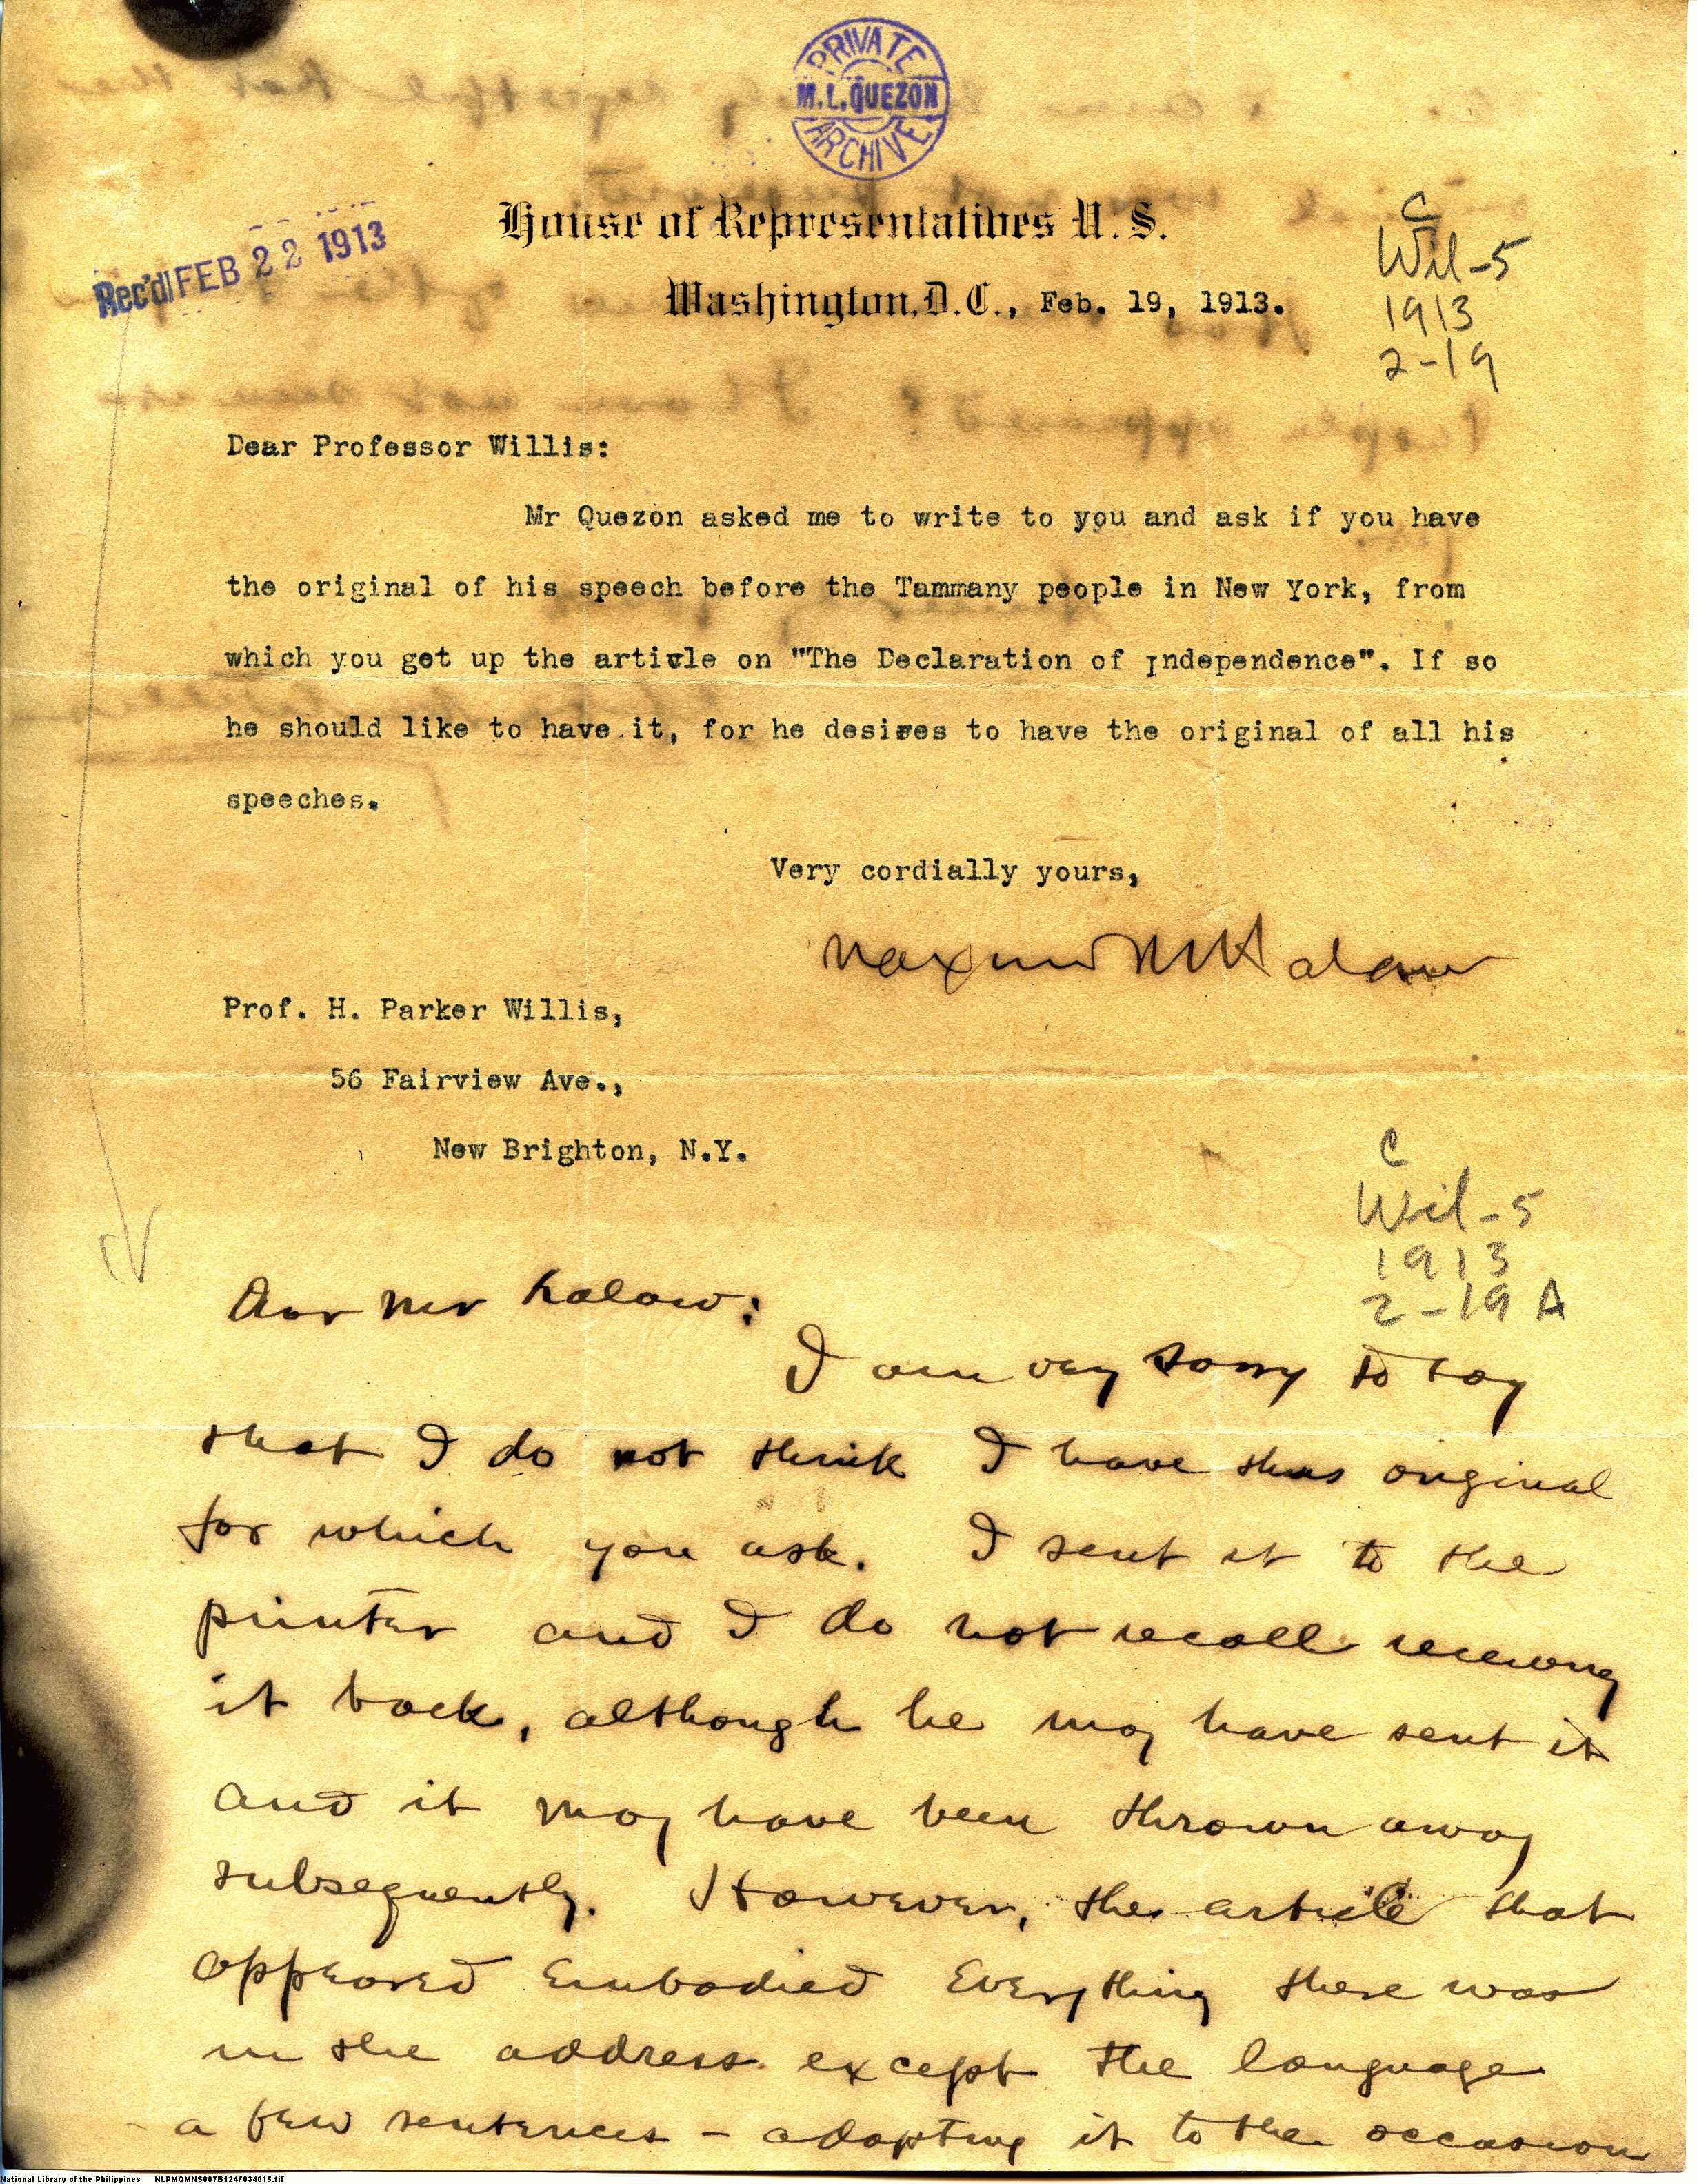 PRIVATE
M.L.QUEZON
ARCHIVE
House of Representatives U.S.
Rec'd FEB 22 1913
Washington, D.C., Feb. 19, 1913.
C
Wil-5
1913
2-19
Dear Professor Willis:
Mr Quezon asked me to write to you and ask if you have
the original of his speech before the Tammany people in New York, from
which you get up the artivle on "The Declaration of Independence". If so
he should like to have it, for he desires to have the original of all his
speeches.
Very cordially yours,
Maximo M Kalaw
Prof. H. Parker Willis,
56 Fairview Ave.,
New Brighton, N.Y.
C
Wil-5
1913
2-19 A
Dear Mr Kalaw:
I am very sorry to say
that I do not think I have this original
for which you ask. I sent it to the
printer and I do not recall receiving
it back, although he may have sent it
and it may have been thrown away
subsequently. However, the article that
appeared embodied everything there was
in the address except the language
a few sentences - adapting it to the occasion
National Library of the Philippines NLPMQMNS007B124F034015.tif